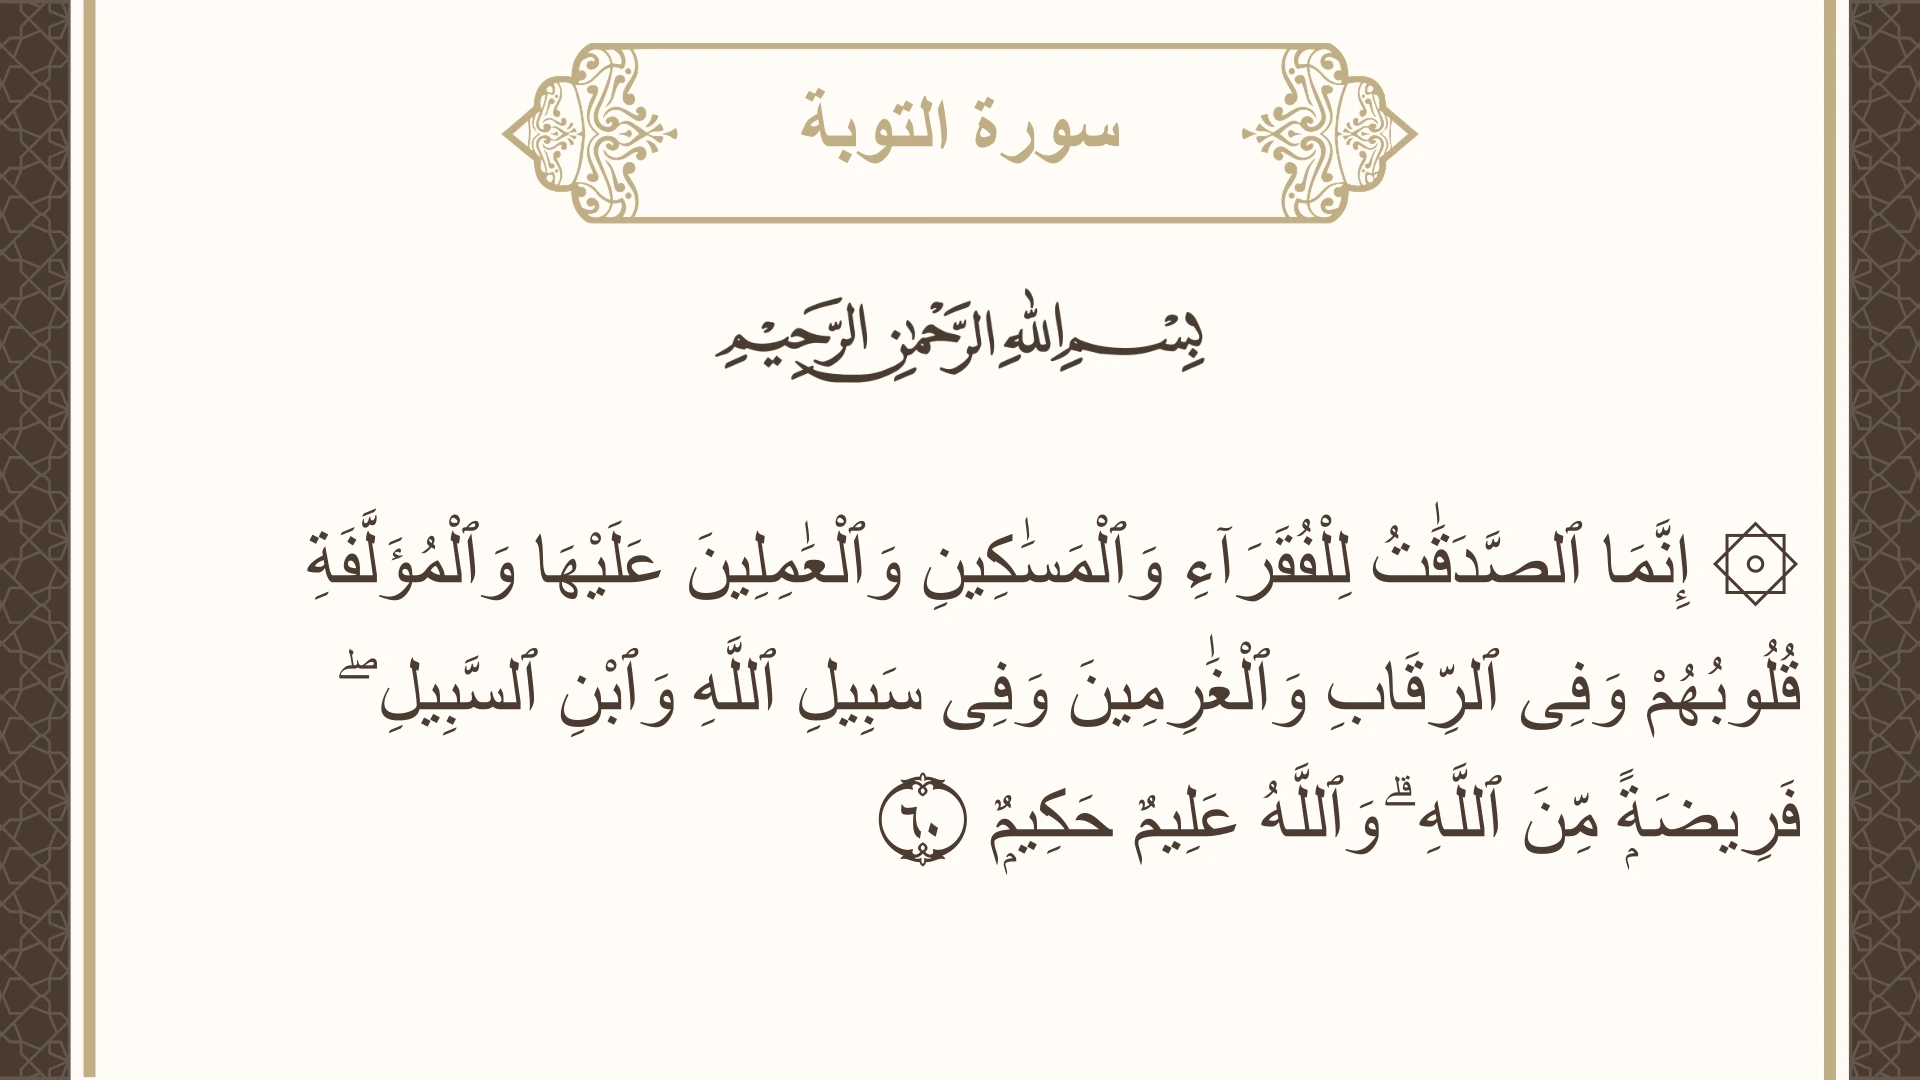 سورة التوبة
بِسْمِ اللهِ الرَّحْمٰنِ الرَّحِيْمِ
۞ إِنَّمَا ٱلصَّدَقَٰتُ لِلْفُقَرَآءِ وَٱلْمَسَٰكِينِ وَٱلْعَٰمِلِينَ عَلَيْهَا وَٱلْمُؤَلَّفَةِ
قُلُوبُهُمْ وَفِى ٱلرِّقَابِ وَٱلْغَٰرِمِينَ وَفِى سَبِيلِ ٱللَّهِ وَٱبْنِ ٱلسَّبِيلِ ۖ
فَرِيضَةًۭ مِّنَ ٱللَّهِ ۗ وَٱللَّهُ عَلِيمٌ حَكِيمٌۭ ٦٠